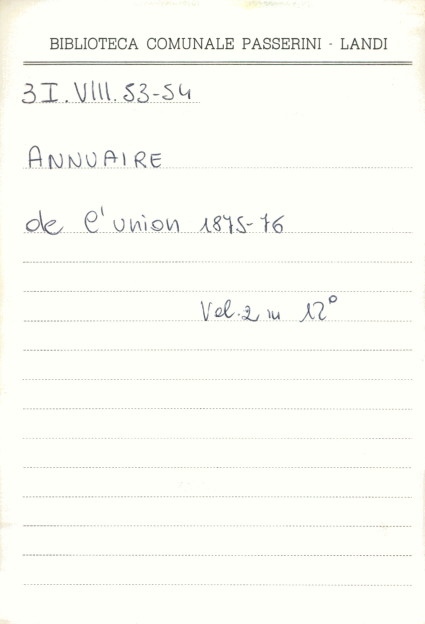 BIBLIOTECA COMUNALE PASSERINI - LANDI
3I.VIII.53-54
ANNUAIRE
de l'union 1875-76
Vol. 2 in 12°